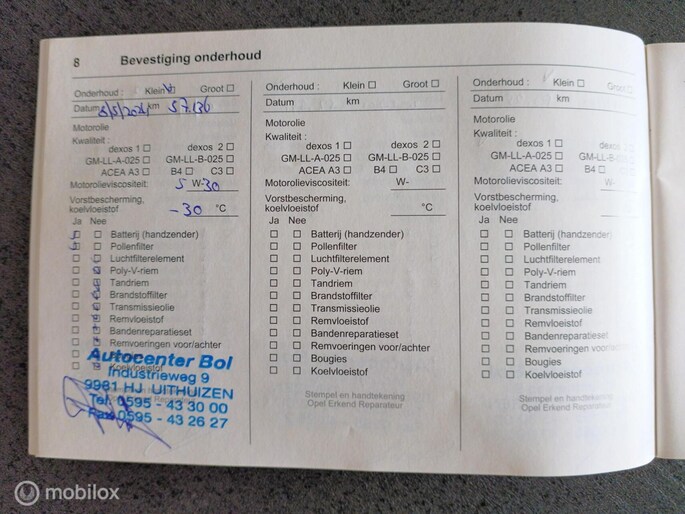 8 Bevestiging onderhoud
Onderhoud : Klein Groot
Datum km 57.136
Motorolie
Kwaliteit :
dexos 1 dexos 2
GM-LL-A-025 GM-LL-B-025
ACEA A3 B4 C3
Motorolieviscositeit: 5 W-30
Vorstbescherming,
koelvloeistof -30 °C
Ja Nee
Batterij (handzender)
Pollenfilter
Luchtfilterelement
Poly-V-riem
Tandriem
Brandstoffilter
Transmissieolie
Remvloeistof
Bandenreparatieset
Remvoeringen voor/achter
Autocenter Bol
Industrieweg 9
9981 HJ UITHUIZEN
Tel. 0595 - 43 30 00
Fax 0595 - 43 26 27
Onderhoud : Klein Groot
Datum km
Motorolie
Kwaliteit :
dexos 1 dexos 2
GM-LL-A-025 GM-LL-B-025
ACEA A3 B4 C3
Motorolieviscositeit: W-
Vorstbescherming,
koelvloeistof °C
Ja Nee
Batterij (handzender)
Pollenfilter
Luchtfilterelement
Poly-V-riem
Tandriem
Brandstoffilter
Transmissieolie
Remvloeistof
Bandenreparatieset
Remvoeringen voor/achter
Bougies
Koelvloeistof
Stempel en handtekening
Opel Erkend Reparateur
Onderhoud : Klein Groot
Datum km
Motorolie
Kwaliteit :
dexos 1 dexos 2
GM-LL-A-025 GM-LL-B-025
ACEA A3 B4 C3
Motorolieviscositeit: W-
Vorstbescherming,
koelvloeistof °C
Ja Nee
Batterij (handzender)
Pollenfilter
Luchtfilterelement
Poly-V-riem
Tandriem
Brandstoffilter
Transmissieolie
Remvloeistof
Bandenreparatieset
Remvoeringen voor/achter
Bougies
Koelvloeistof
Stempel en handtekening
Opel Erkend Reparateur
mobilox